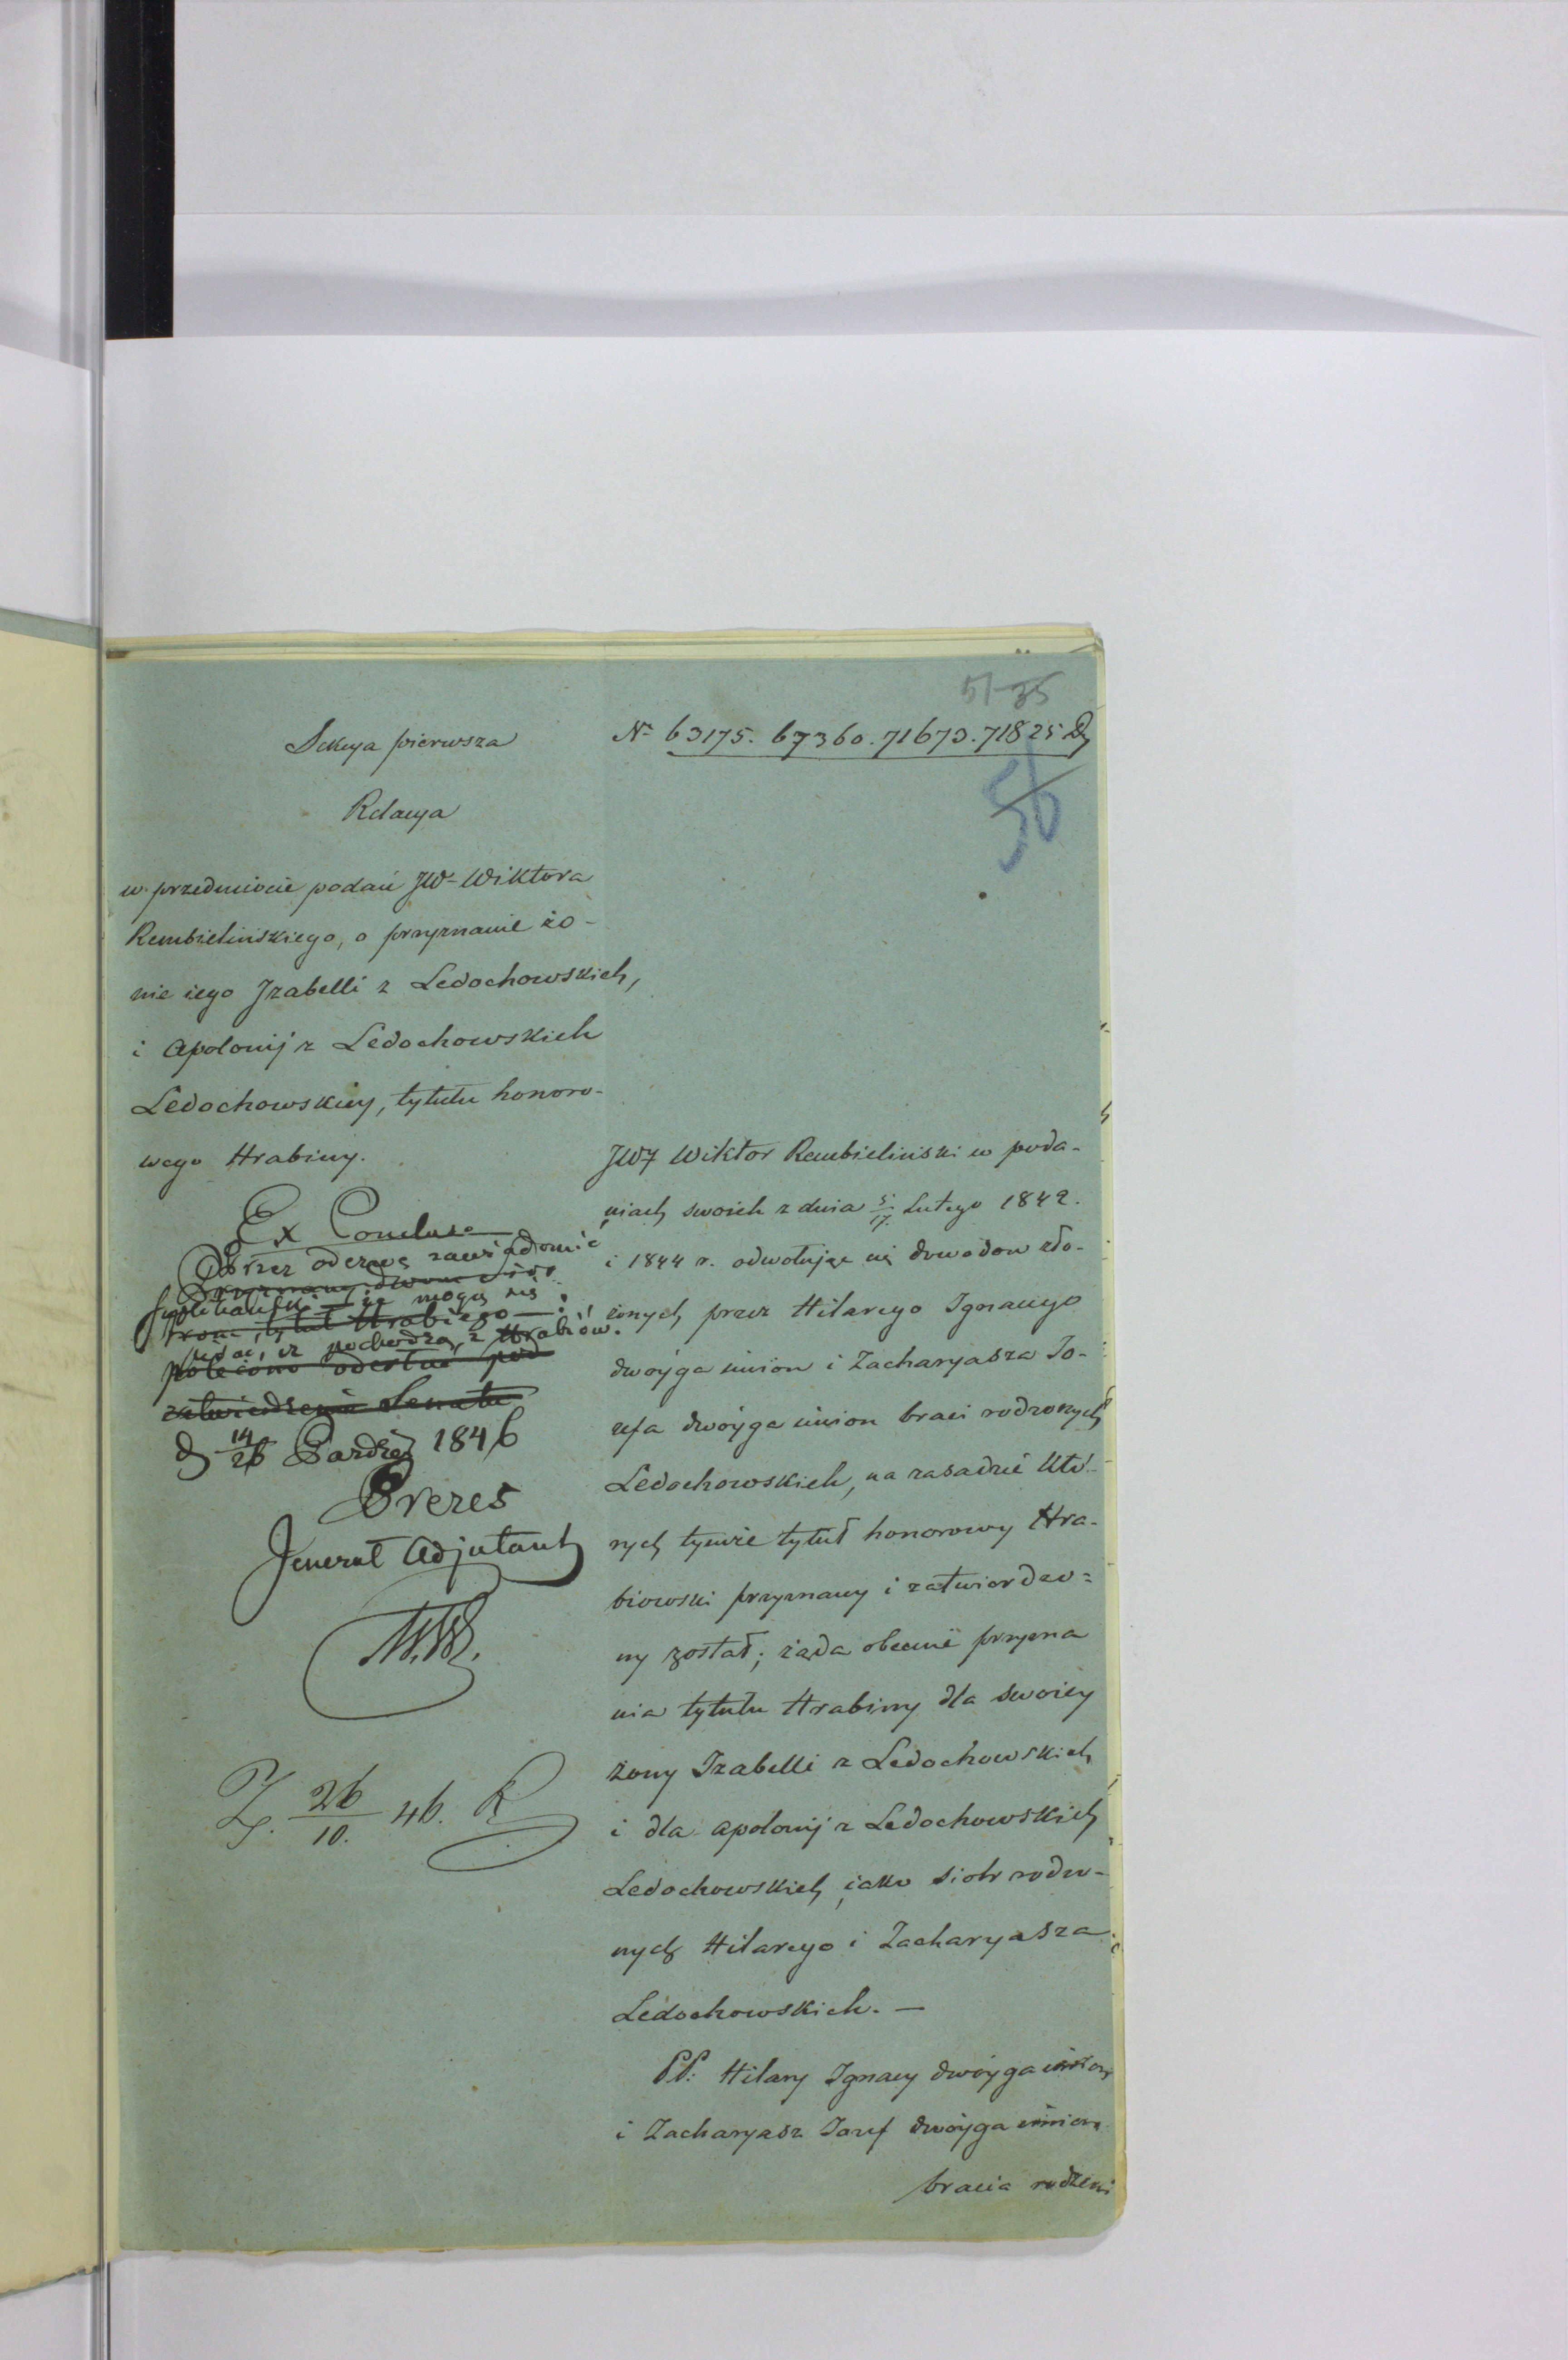 51 35
Sekcya pierwsza
No 63175. 67360. 71673. 71825 D
56
Relacya
w przedmiocie podań JW Wiktora
Rembielińskiego, o przyznanie żo-
nie iego Izabelli z Ledochowskich,
i Apolonij z Ledochowskich
Ledochowskiey, tytułu honoro-
wego Hrabiny.
Ex Concluso
Przez odezwę zawiadomić
Przyznany dwom
że mogą się
tytuł Hrabiego
podać, iż pochodzą z Hrabiów.
polecono odesłać pod
zatwierdzenie Senatu
d 14/26 Paździer 1846
Prezes
Jenerał Adjutant
Z. 26/10. 46. R
JW Wiktor Rembieliński w poda-
niach swoich z dnia 5/17 Lutego 1842.
i 1844 r. odwołując się dowodow zło-
żonych przez Hilarego Ignacego
dwóyga imion i Zacharyasza Jo-
zefa dwóyga imion braci rodzonych
Ledochowskich, na zasadzie któ-
rych tymże tytuł honorowy Hra-
biowski przyznany i zatwierdzo-
ny został; żąda obecnie przyzna
nia tytułu Hrabiny dla swoiey
żony Izabelli z Ledochowskich
i dla Apolonij z Ledochowskich
Ledochowskich, iako siostr rodzo-
nych Hilarego i Zacharyasza
Ledochowskich. —
PP. Hilary Ignacy dwóyga imion
i Zacharyasz Jozef dwóyga imion
bracia rodzeni